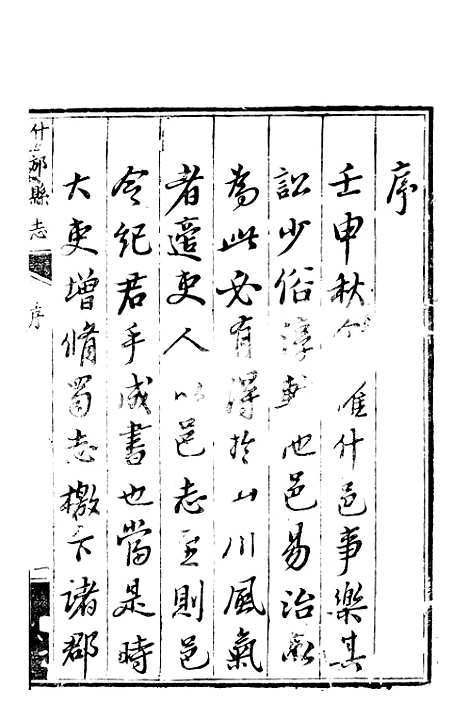 序
壬申秋什邑事樂其
訟少俗淳他邑易治
為此必有得於山川風氣
者適吏人以邑志至則邑
令紀君手成書也當是時
大吏增脩蜀志檄下諸郡
什邡縣志
序
一